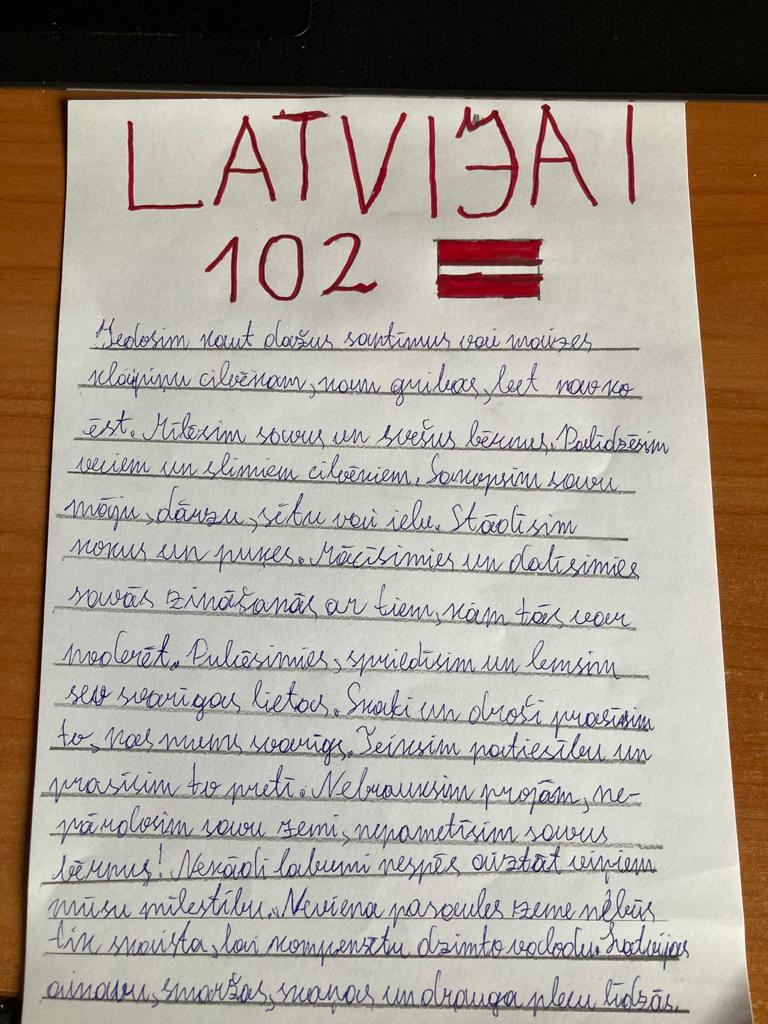 LATVIJAI
102
Iedosim kaut dažus santīmus vai maizes
klaipiņu cilvēkam, kam gribas, bet nav ko
ēst. Mīlēsim savus un svešus bērnus. Palīdzēsim
veciem un slimiem cilvēkiem. Sakopsim savu
māju, dārzu, sētu vai ielu. Stādīsim
kokus un puķes. Mācīsimies un dalīsimies
savās zināšanās ar tiem, kam tās var
noderēt. Pulcēsimies, spriedīsim un lemsim
sev svarīgas lietas. Skaļi un droši prasīsim
to, kas mums svarīgs. Teiksim patiesību un
prasīsim to pretī. Nebrauksim projām, ne-
pārdosim savu zemi, nepametīsim savus
bērnus! Nekādi labumi nespēs aizstāt viņiem
mūsu mīlestību. Neviena pasaules zeme nebūs
tik skaista, lai kompensētu dzimto valodu. Latvijas
ainavu, smaržas, skaņas un drauga plecu līdzās.